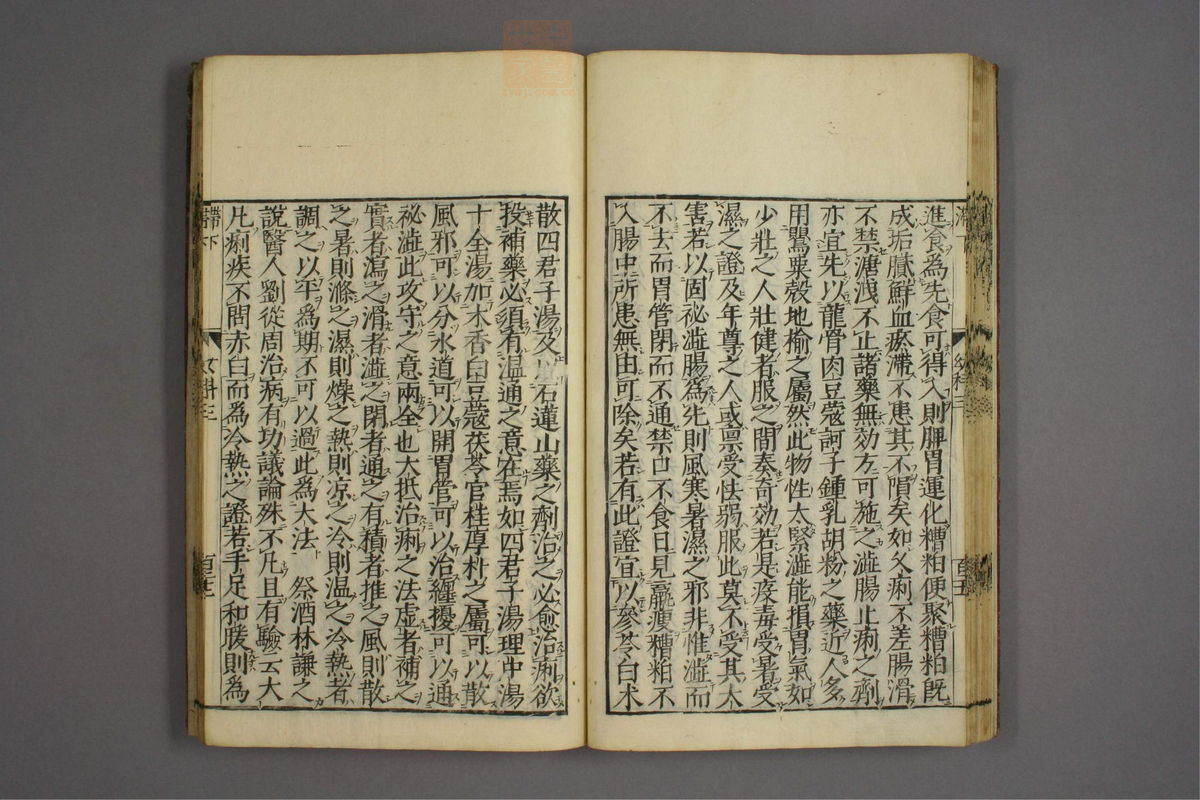 進食為先食可得入則脾胃運化糟粕便聚糟粕既
成垢膩鮮血瘀滯不患其不隕矣如久痢不差腸滑
不禁溏洩不止諸藥無効方可施之澁腸止痢之劑
亦宜先以龍骨肉豆蔻訶子鍾乳胡粉之藥近人多
用罌粟殼地榆之屬然此物性太緊澁能損胃氣如
少壯之人壯健者服之間奏奇効若是疫毒受暑受
濕之證及年尊之人或禀受怯弱服此莫不受其大
害若以固祕澁腸為先則風寒暑濕之邪非惟澁而
不去而胃管閉而不通禁口不食日見羸瘦糟粕不
入腸中所患無由可除矣若有此證宜以參苓白术
散四君子湯及以石蓮山藥之劑治之必愈治痢欲
投補藥必須有温通之意在焉如四君子湯理中湯
十全湯加木香白豆蔻茯苓官桂厚朴之屬可以散
風邪可以分水道可以開胃管可以治纏擾可以通
祕澁此攻守之意兩全也大抵治痢之法虚者補之
實者瀉之滑者澁之閉者通之有積者推之風則散
之暑則滌之濕則燥之熱則凉之冷則温之冷熱者
調之以平為期不可以過此為大法　祭酒林謙之
說醫人劉從周治病有功議論殊不凡且有驗云大
凡痢疾不問赤白而為冷熱之證若手足和暖則為